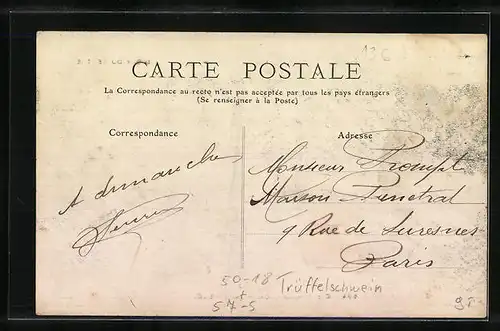 136
CARTE POSTALE
La Correspondance au recto n'est pas acceptée par tous les pays étrangers
(Se renseigner à la Poste)
Correspondance
Adresse
A dimanche
Monsieur Prompt
Maison
9 Rue de Suresnes
Paris
50-18 Trüffelschwein
57-5